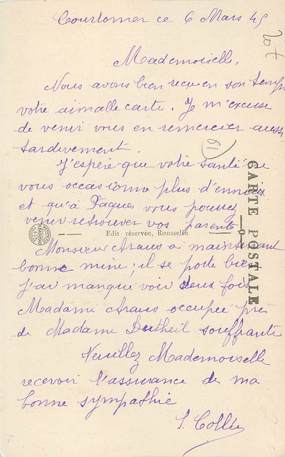 Courtomer ce 6 Mars 45
20f
Mademoiselle,
Nous avons bien reçu en son temps
votre aimable carte. Je m'excuse
de venir vous en remercier aussi
tardivement.
61
J'espère que votre santé ne
vous occasionne plus d'ennuis
et qu'à Pâques vous pourrez
venir retrouver vos parents.
CARTE POSTALE
Edit réservée, Rousselle
Monsieur a maintenant
bonne mine; il se porte bien
J'ai manqué voir deux fois
Madame occupée près
de Madame Dutheil souffrante
Veuillez Mademoiselle
recevoir l'assurance de ma
bonne sympathie